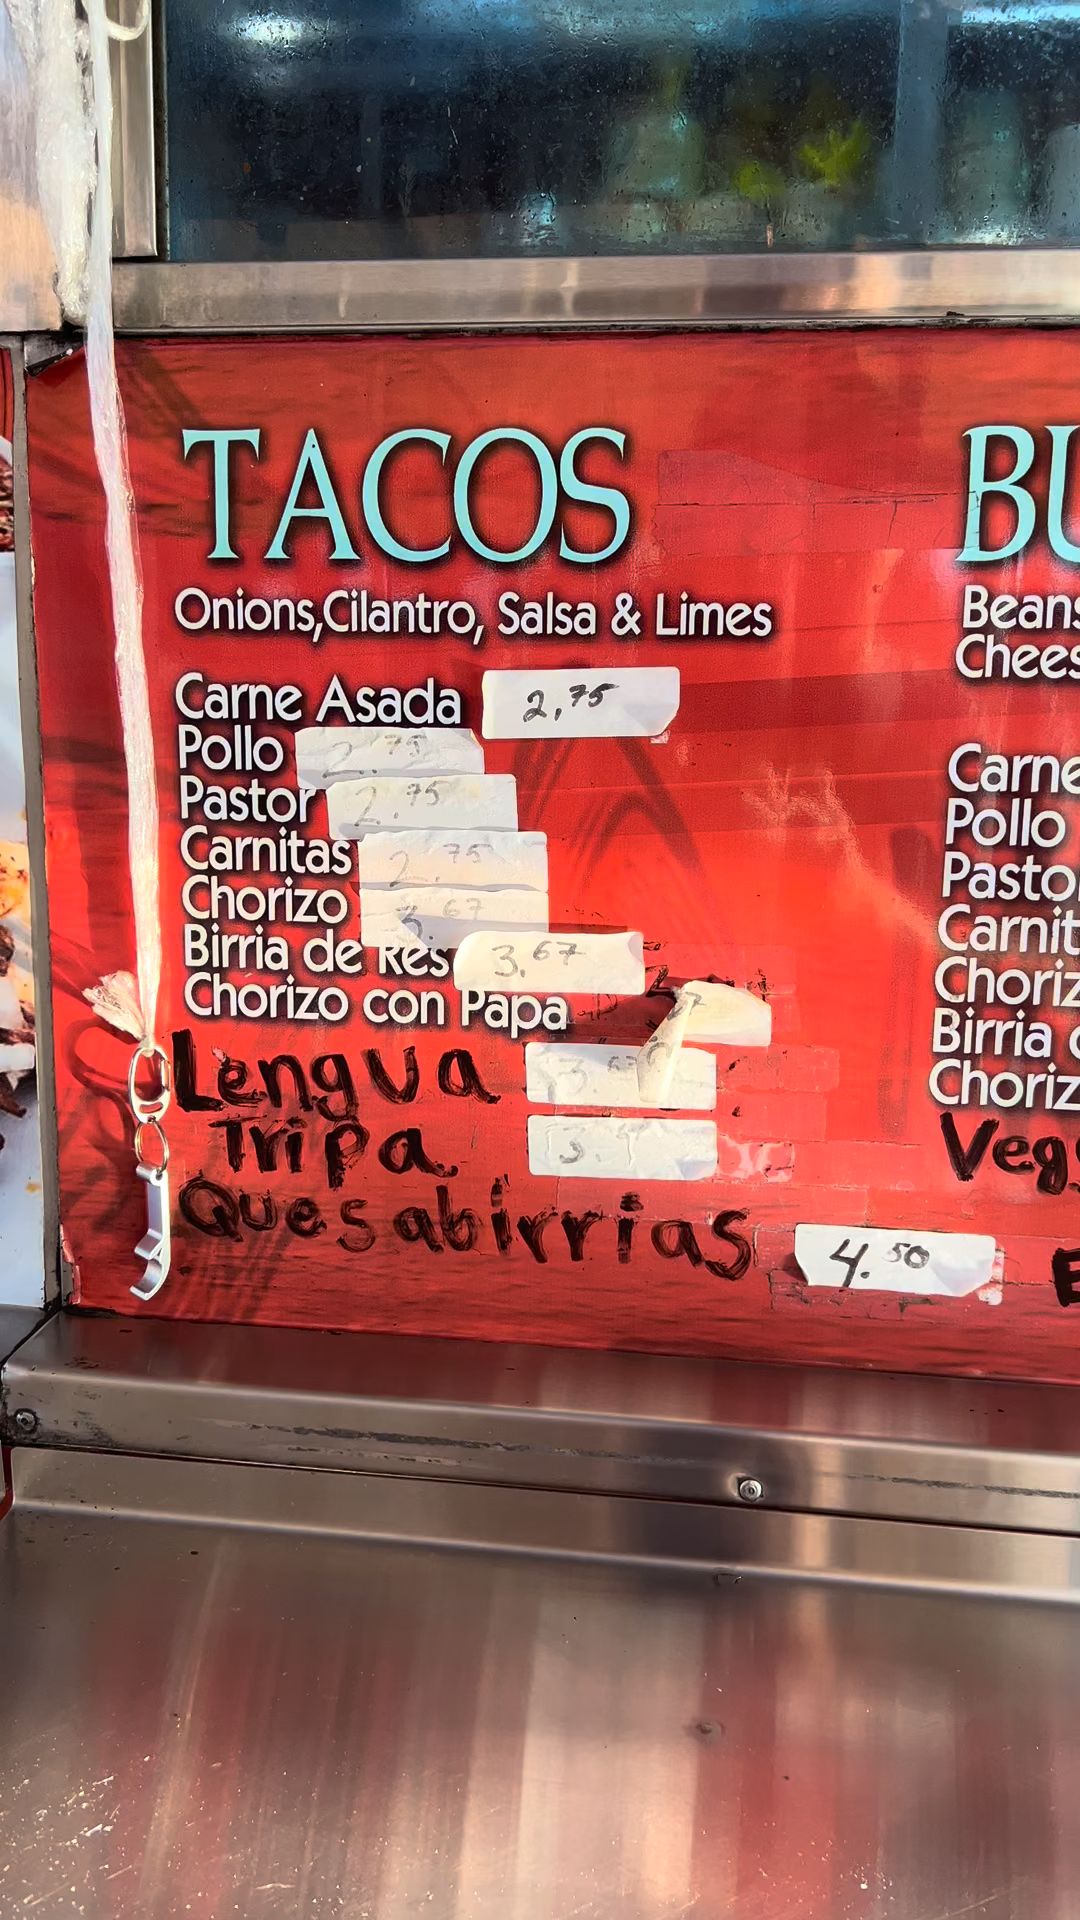 TACOS
Onions,Cilantro, Salsa & Limes
Carne Asada 2,75
Pollo 2.75
Pastor 2.75
Carnitas 2.75
Chorizo 3.67
Birria de Res 3.67
Chorizo con Papa
Lengua
Tripa
Quesabirrias 4.50
BU
Beans
Chees
Carne
Pollo
Pastor
Carnit
Choriz
Birria
Choriz
Veg